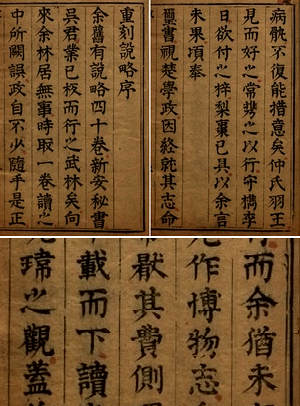 重刻說略序
余舊有說略四十卷新安秘書
吳君業已校而行之武林矣向
來余林居無事時取一卷讀之
中所闕誤政自不少隨手是正
病骫不復能措意矣仲氏羽王
見而好之常攜之以行守檇李
日欲付之梓梨棗已具以余言
未果頃奉
璽書視楚學政因終就其志命
而余猶未
作博物志
厭其費側
載而下讀
瑋之觀蓋